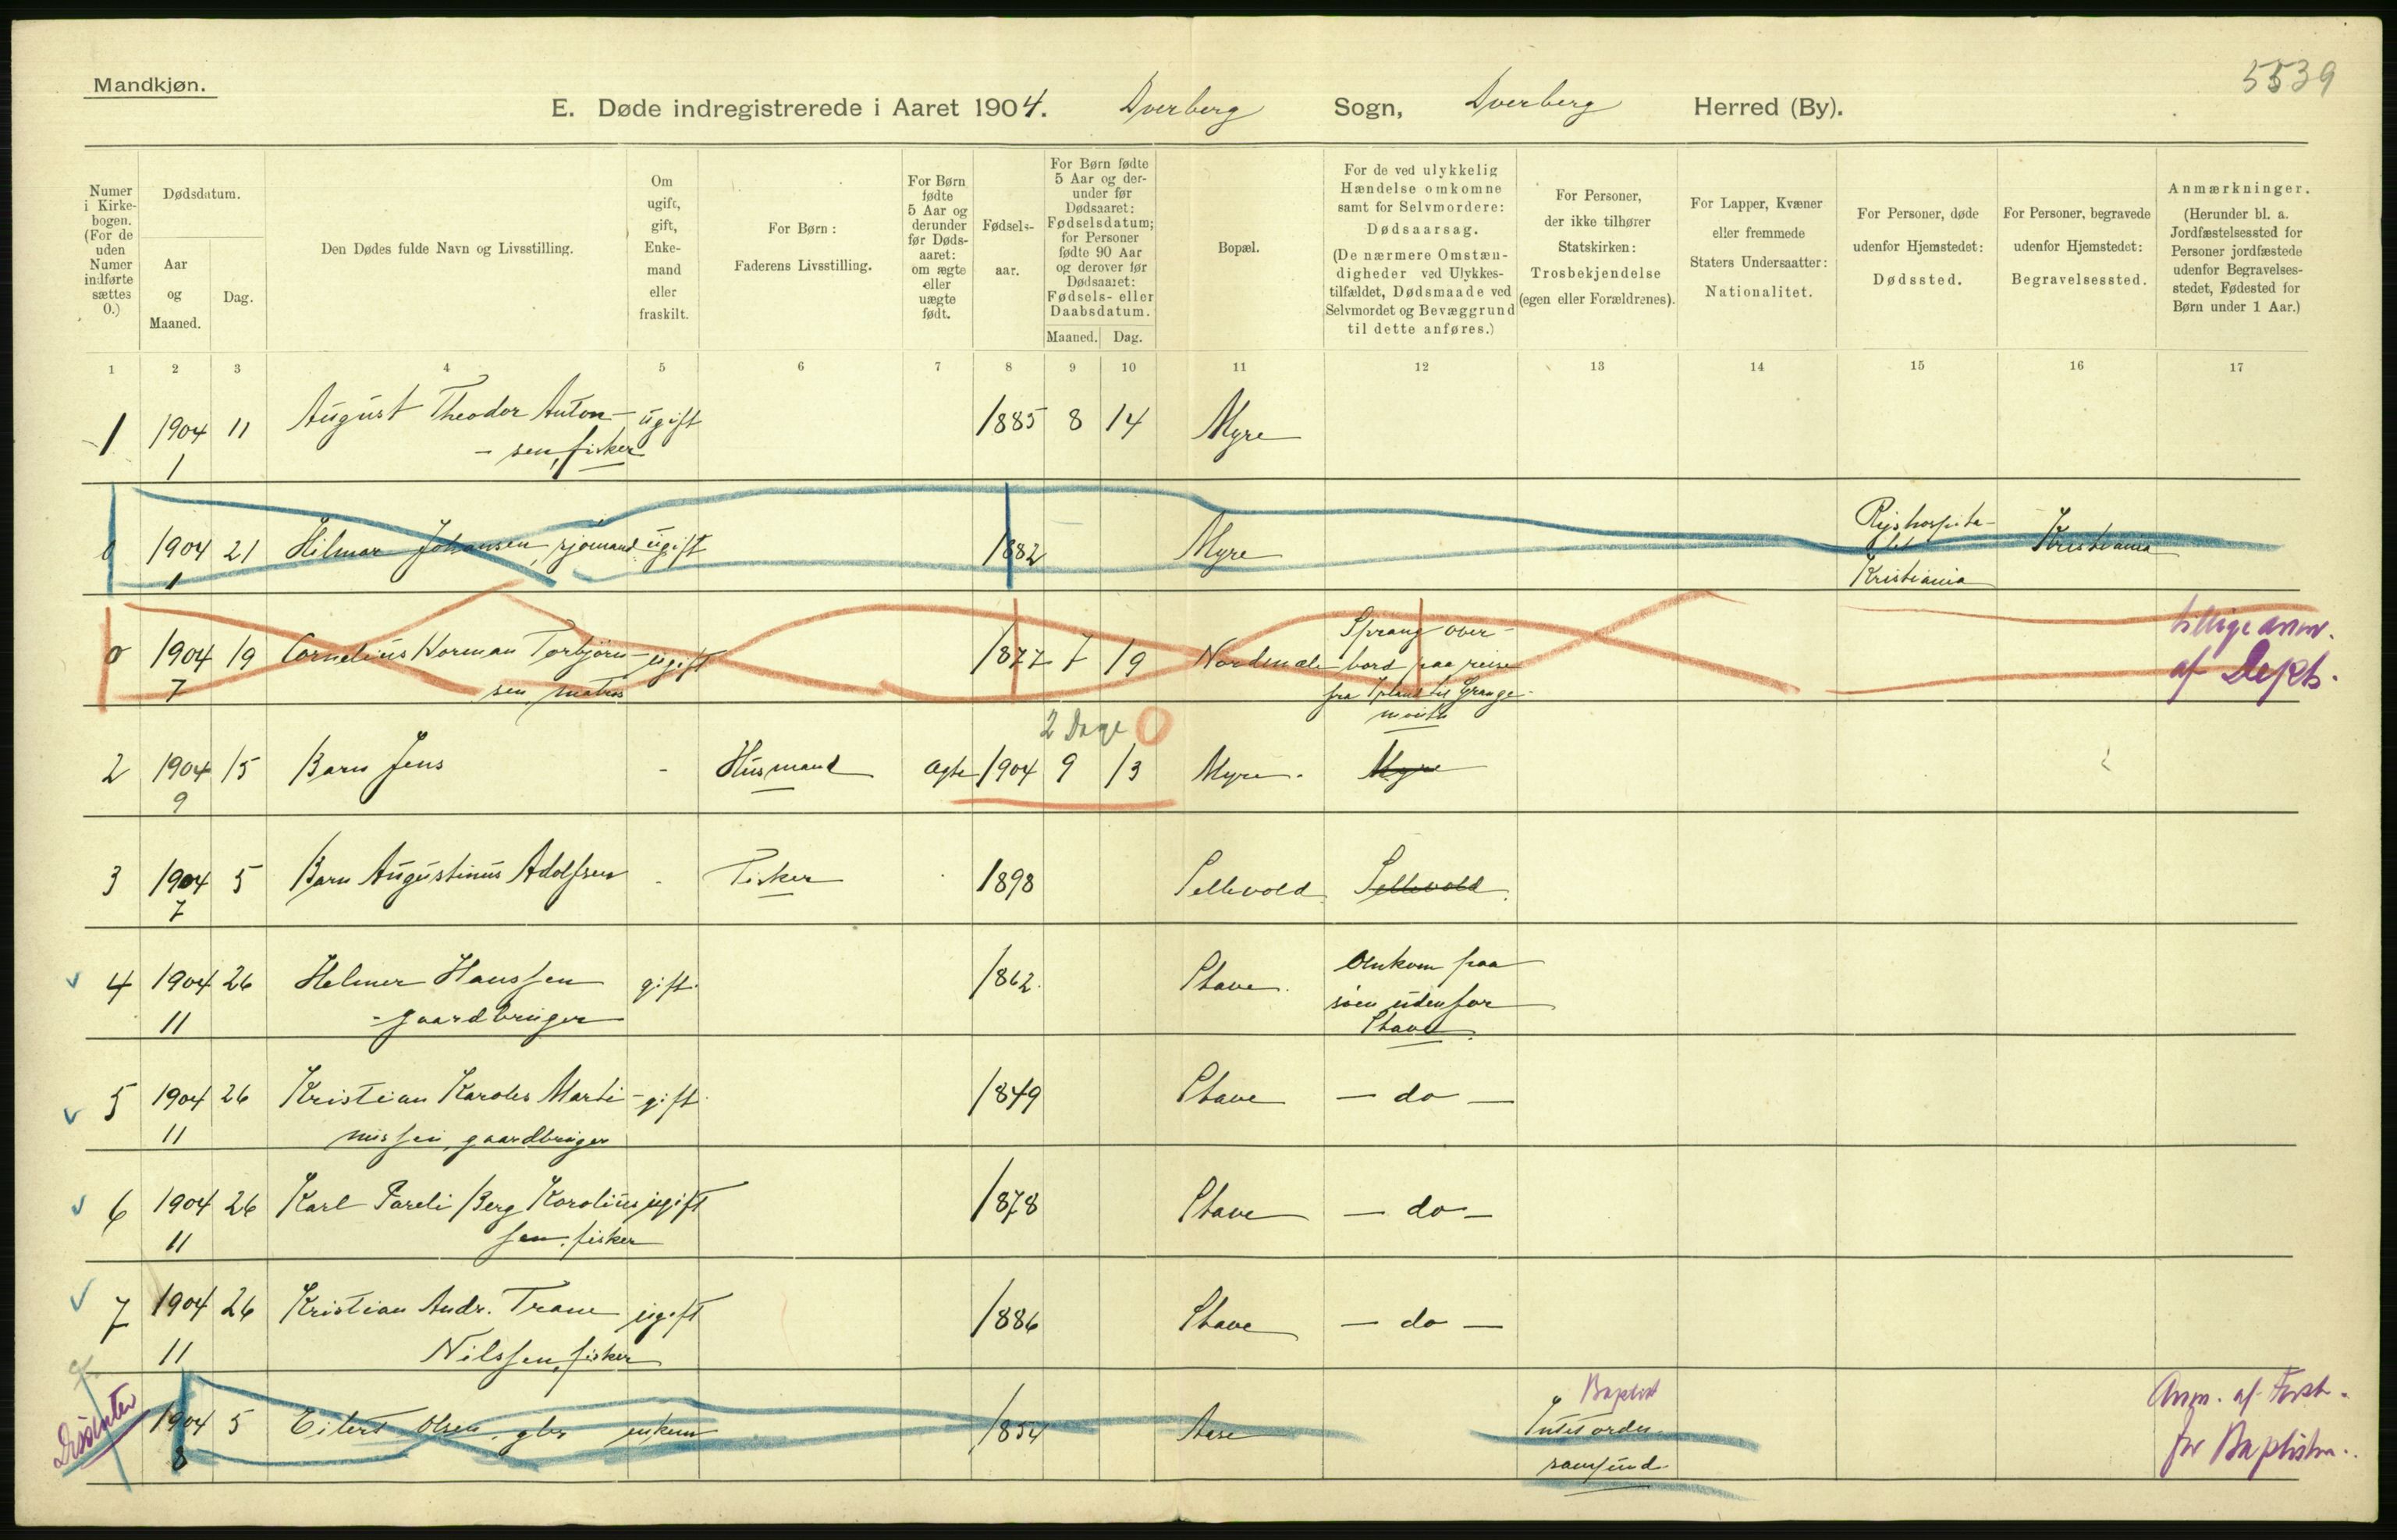 Mandkjøn.
5539
E. Døde indregistrerede i Aaret 1904. Dverberg Sogn, Dverberg Herred (By).
Numer i Kirke-bogen. (For de uden Numer indførte sættes 0.)
Dødsdatum.
Aar og Maaned.
Dag.
Den Dødes fulde Navn og Livsstilling.
Om ugift, gift, Enke-mand eller fraskilt.
For Børn: Faderens Livsstilling.
For Børn fødte 5 Aar og derunder før Døds-aaret: om ægte eller uægte født.
Fødsels-aar.
For Børn fødte 5 Aar og der-under før Dødsaaret: Fødselsdatum; for Personer fødte 90 Aar og derover før Dødsaaret: Fødsels- eller Daabsdatum.
Maaned. Dag.
Bopæl.
For de ved ulykkelig Hændelse omkomne samt for Selvmordere: Dødsaarsag. (De nærmere Omstæn-digheder ved Ulykkes-tilfældet, Dødsmaade ved Selvmordet og Bevæggrund til dette anføres.)
For Personer, der ikke tilhører Statskirken: Trosbekjendelse (egen eller Forældrenes).
For Lapper, Kvæner eller fremmede Staters Undersaatter: Nationalitet.
For Personer, døde udenfor Hjemstedet: Dødssted.
For Personer, begravede udenfor Hjemstedet: Begravelsessted.
Anmærkninger. (Herunder bl. a. Jordfæstelsessted for Personer jordfæstede udenfor Begravelses-stedet, Fødested for Børn under 1 Aar.)
1 2 3 4 5 6 7 8 9 10 11 12 13 14 15 16 17
1 1904 11 August Theodor Anton- ugift 1885 8 14 Myre
1 - sen, fisker
0 1904 21 Hilmar Johansen, sjømand ugift 1882 Myre Rigshospita-let Kristiania
1 Kristiania
0 1904 19 Cornelius Norman Torbjørn- ugift 1877 7 19 Nordmæle Sprang over-bord paa reise
7 sen, matros fra Island til Grange-mouth
tillige anm.
af Depts.
2 Dage 0
2 1904 15 Barn Jens - Husmand Ægte 1904 9 13 Myre. Myre
9
3 1904 5 Barn Augustinus Adolfsen - Fisker 1898 Sellevold Sellevold.
7
4 1904 26 Helmer Hanssen gift 1862. Stave. Omkom paa
11 - gaardbruger søen udenfor
Stave.
5 1904 26 Kristian Karolus Marti- gift 1849 Stave - do -
11 nissen, gaardbruger
6 1904 26 Karl Pareli Berg Karolius ugift 1878 Stave - do -
11 sen. fisker
7 1904 26 Kristian Andr. Trane ugift 1886 Stave - do -
11 Nilssen, fisker
Dissenter 1904 5 Eilert Olsen, gbr 1854 Aase Baptist
8 samfund
Anm. af Forst.
for Baptistm.